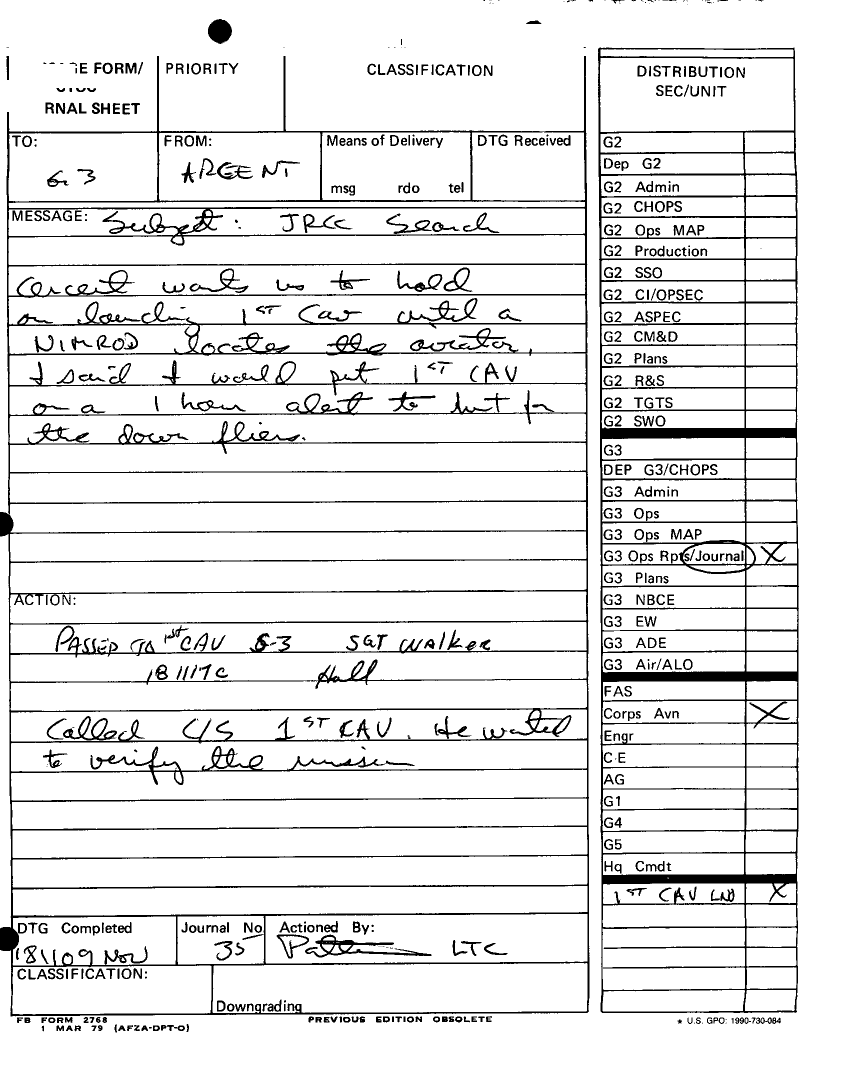 E FORM/
RNAL SHEET
PRIORITY
CLASSIFICATION
TO:
G3
FROM:
ARGENT
Means of Delivery
msg rdo tel
DTG Received
MESSAGE: Subject: JRCC Search
Arcent wants us to hold
on launching 1ST Cav until a
NIMROD locates the aviator,
I said I would put 1ST CAV
on a 1 hour alert to hunt for
the down fliers.
ACTION:
PASSED TO 1st CAV G-3 SGT WALKER
181117C Hall
Called C/S 1ST CAV. He wanted
to verify the mission
DTG Completed
181109 Nov
Journal No
35
Actioned By:
LTC
CLASSIFICATION:
Downgrading
FB FORM 2768
1 MAR 79 (AFZA-DPT-O)
PREVIOUS EDITION OBSOLETE
DISTRIBUTION
SEC/UNIT
G2
Dep G2
G2 Admin
G2 CHOPS
G2 Ops MAP
G2 Production
G2 SSO
G2 CI/OPSEC
G2 ASPEC
G2 CM&D
G2 Plans
G2 R&S
G2 TGTS
G2 SWO
G3
DEP G3/CHOPS
G3 Admin
G3 Ops
G3 Ops MAP
G3 Ops Rpts/Journal X
G3 Plans
G3 NBCE
G3 EW
G3 ADE
G3 Air/ALO
FAS
Corps Avn X
Engr
C-E
AG
G1
G4
G5
Hq Cmdt
1ST CAV LNO X
★ U.S. GPO: 1990-730-084